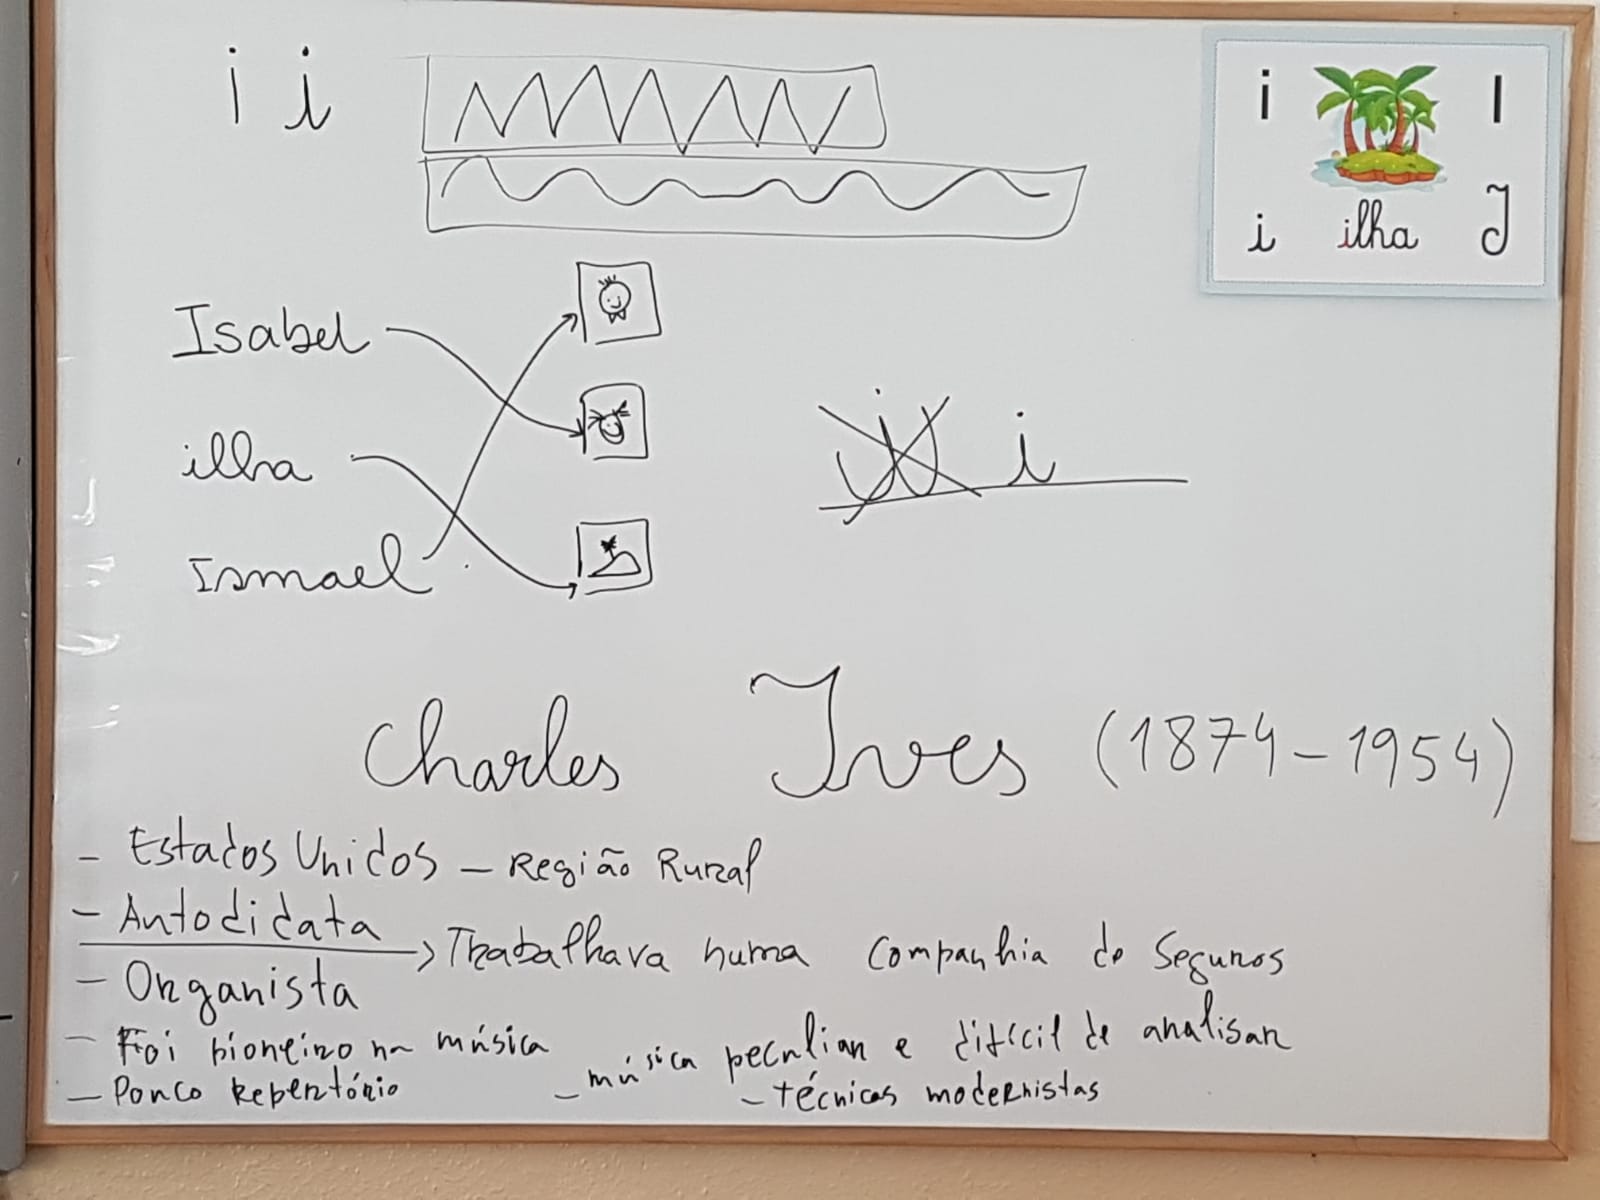 i i
i I
i ilha I
Isabel
ilha
Ismael
i
Charles Ives (1874-1954)
- Estados Unidos - Região Rural
- Autodidata
> Trabalhava numa Companhia de Seguros
- Organista
- Foi pioneiro na música
- música peculiar e difícil de analisar
- Pouco Repertório
- técnicas modernistas